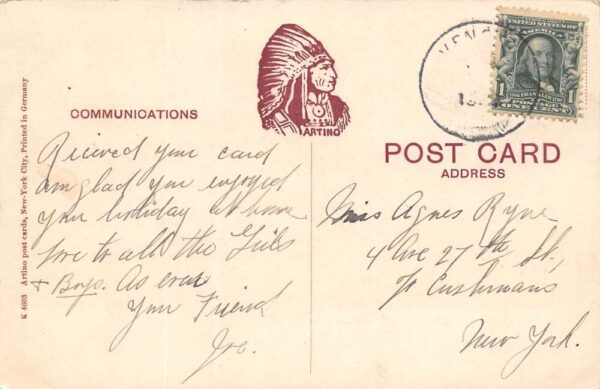 COMMUNICATIONS
Recieved your card
am glad you enjoyed
your holiday at home
love to all the Girls
& Boys. As ever
Your Friend
Joe.
K 4603 Artino post cards, New-York City, Printed in Germany
ARTINO
1
SERIES 1902
UNITED STATES OF
AMERICA
FRANKLIN
POSTAGE
1 1
POST CARD
ADDRESS
Miss Agnes Ryne
4 Ave 27th St.,
c/o Cushmans
New York.